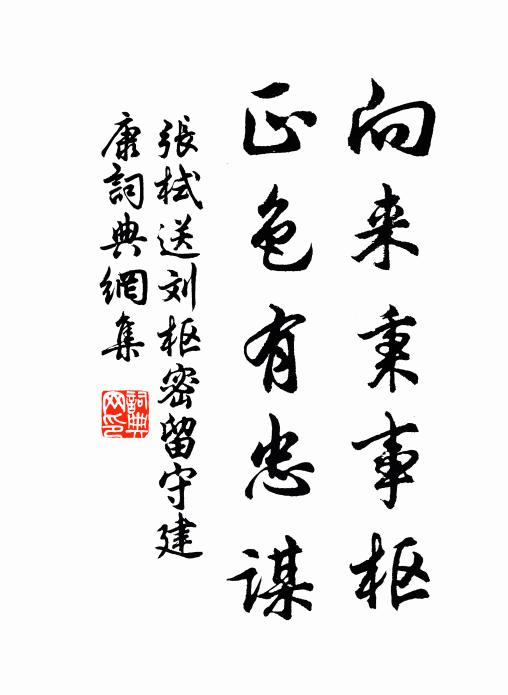 向来秉事枢
正色有忠谋
張栻送刘枢密留守建
康詞典網集
詞典
网印